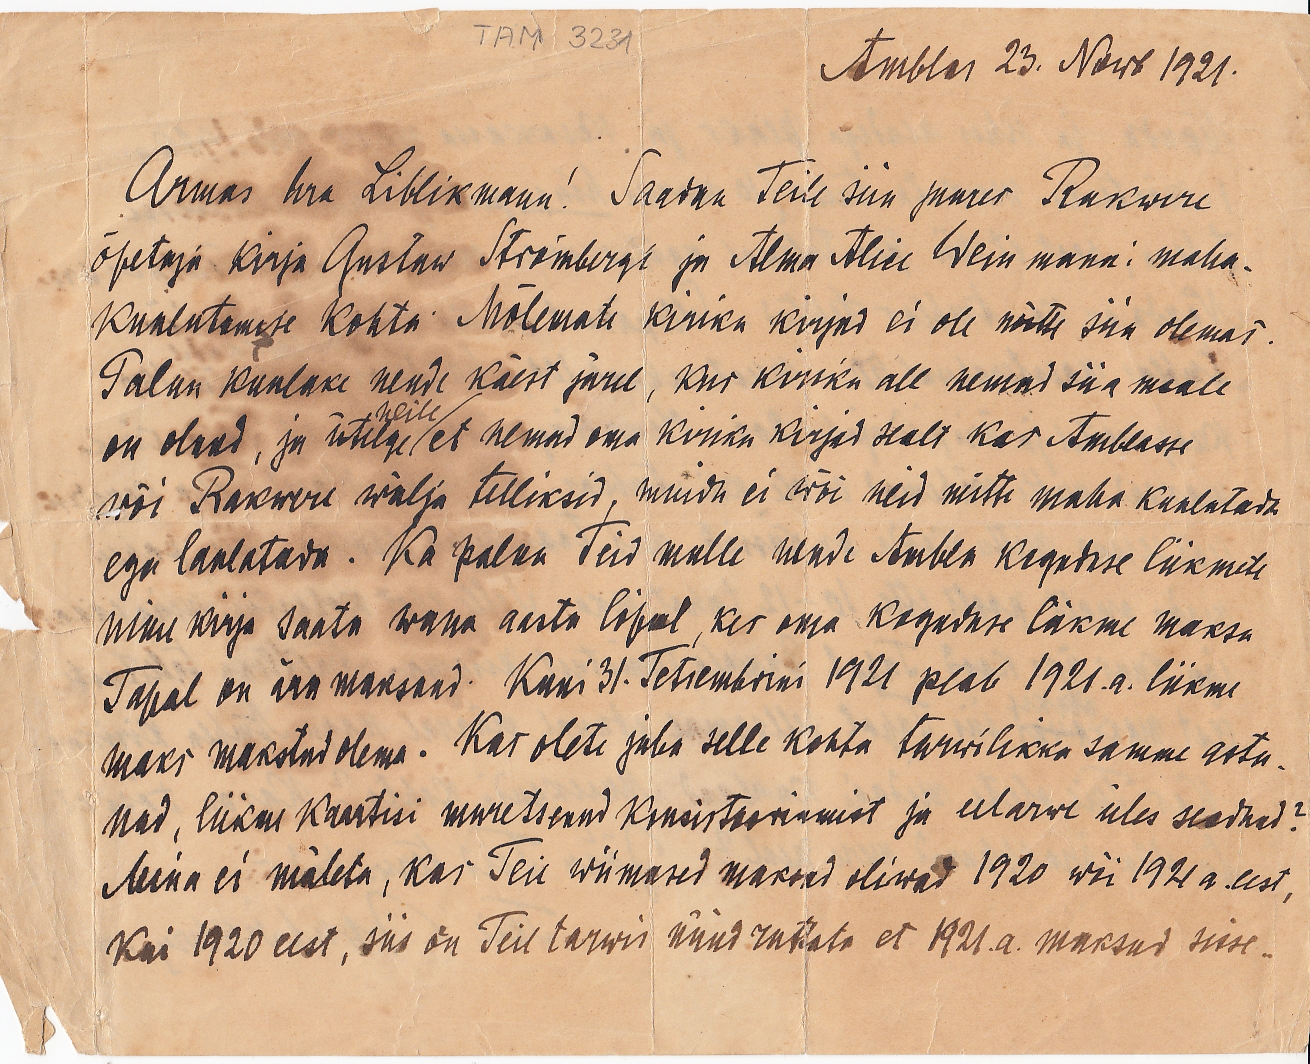 TAM 3231
Amblas 23. Nowb 1921.
Armas hra Liblikmann! Saadan Teile siin juures Rakwere
õpetaja kirja Gustaw Strömbergi ja Alma Alice Weinmanni maha-
kuulutamise kohta. Mõlemate kiriku kirjad ei ole mitte siin olemas.
Palun kuulake nende käest järel, kus kiriku all nemad siia maale
on olnud, ja ütelge neile et nemad oma kiriku kirjad sealt kas Amblasse
wõi Rakwere wälja telliksid, muidu ei wõi neid mitte maha kuulutada
ega laulatada. Ka palun Teid mulle nende Ambla koguduse liikmete
nime kirja saata wana aasta lõpul, kes oma koguduse liikme maksu
Tapal on ära maksnud. Kuni 31. Detsembrini 1921 peab 1921.a. liikme
maks makstud olema. Kas olete juba selle kohta tarwilikka samme astu-
nud, liikme kaartisi muretsenud konsistooriumist ja eelarwe üles seadnud?
Mina ei mäleta, kas Teie wiimased maksud oliwad 1920 wõi 1921 a. eest,
Kui 1920 eest, siis on Teil tarwis nüüd ruttata et 1921.a. maksud sisse-